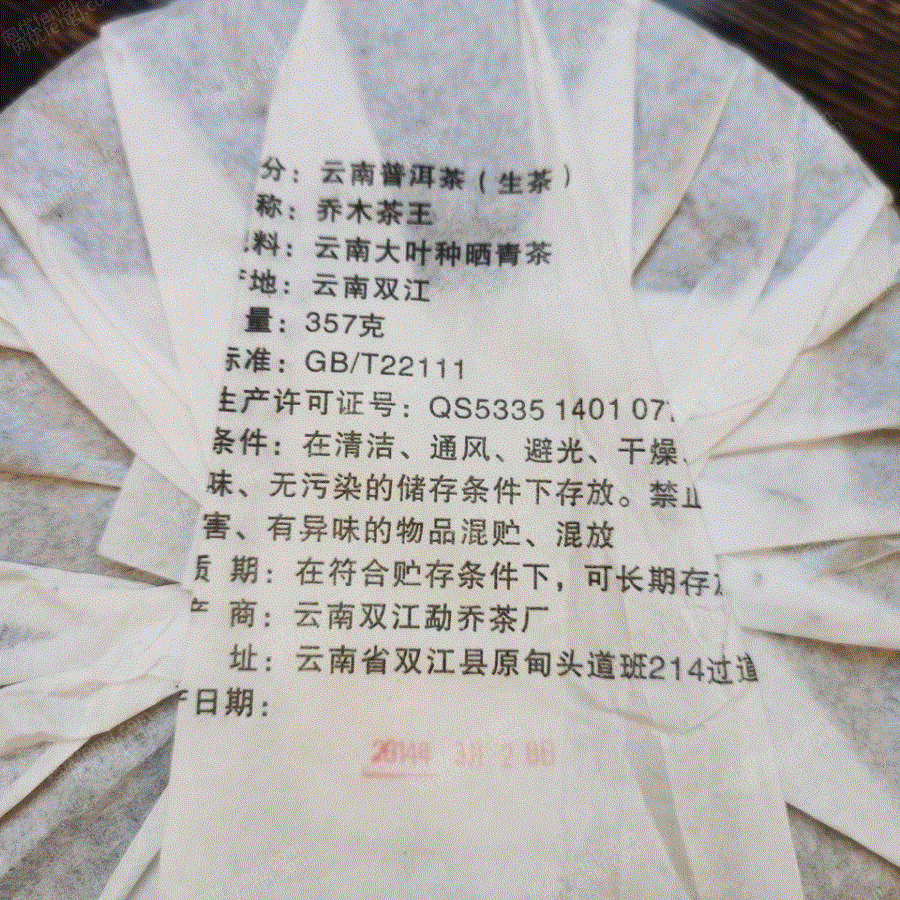 分：云南普洱茶（生茶）
称：乔木茶王
料：云南大叶种晒青茶
地：云南双江
量：357克
标准：GB/T22111
生产许可证号：QS5335 1401 07
条件：在清洁、通风、避光、干燥、
味、无污染的储存条件下存放。禁止
害、有异味的物品混贮、混放
质 期：在符合贮存条件下，可长期存
商：云南双江勐乔茶厂
址：云南省双江县原甸头道班214过道
日期：
2014年 3月 2 8日